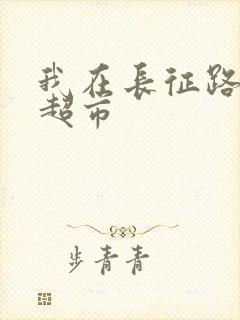 我在長征路
超市
步青青